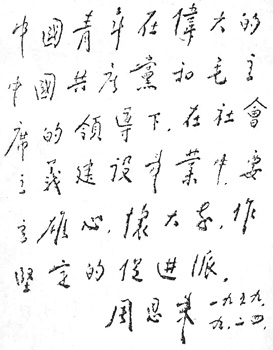 中國青年在偉大的
中國共产黨和毛主
席的領导下,在社會
主義建設事業中,要
立雄心,懷大志,作
堅定的促進派。
周恩来 一九五九.
九.二四.